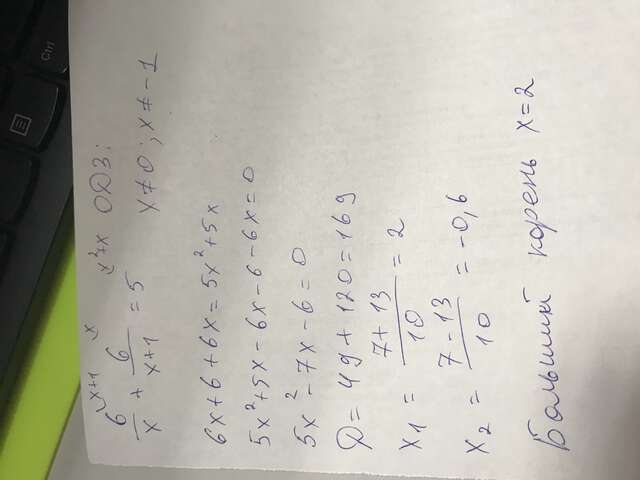 Ctrl
6/x + 6/(x+1) = 5
x+1 x x²+x
ОДЗ:
x≠0; x≠-1
6x+6+6x=5x²+5x
5x²+5x-6x-6-6x=0
5x²-7x-6=0
Д=49+120=169
x₁ = (7+13)/10 = 2
x₂ = (7-13)/10 = -0,6
Больший корень x=2